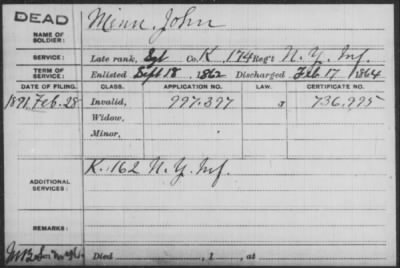 DEAD
NAME OF SOLDIER: Minn, John
SERVICE: Late rank, Sgt Co. K, 174 Reg't N.Y. Inf.
TERM OF SERVICE: Enlisted Sept 18, 1862 Discharged Feb. 17, 1864
DATE OF FILING. CLASS. APPLICATION NO. LAW. CERTIFICATE NO.
1891, Feb. 28 Invalid, 997.397 736,995
Widow,
Minor,
ADDITIONAL SERVICES: K. 162 N.Y. Inf.
REMARKS:
Died , 1 , at